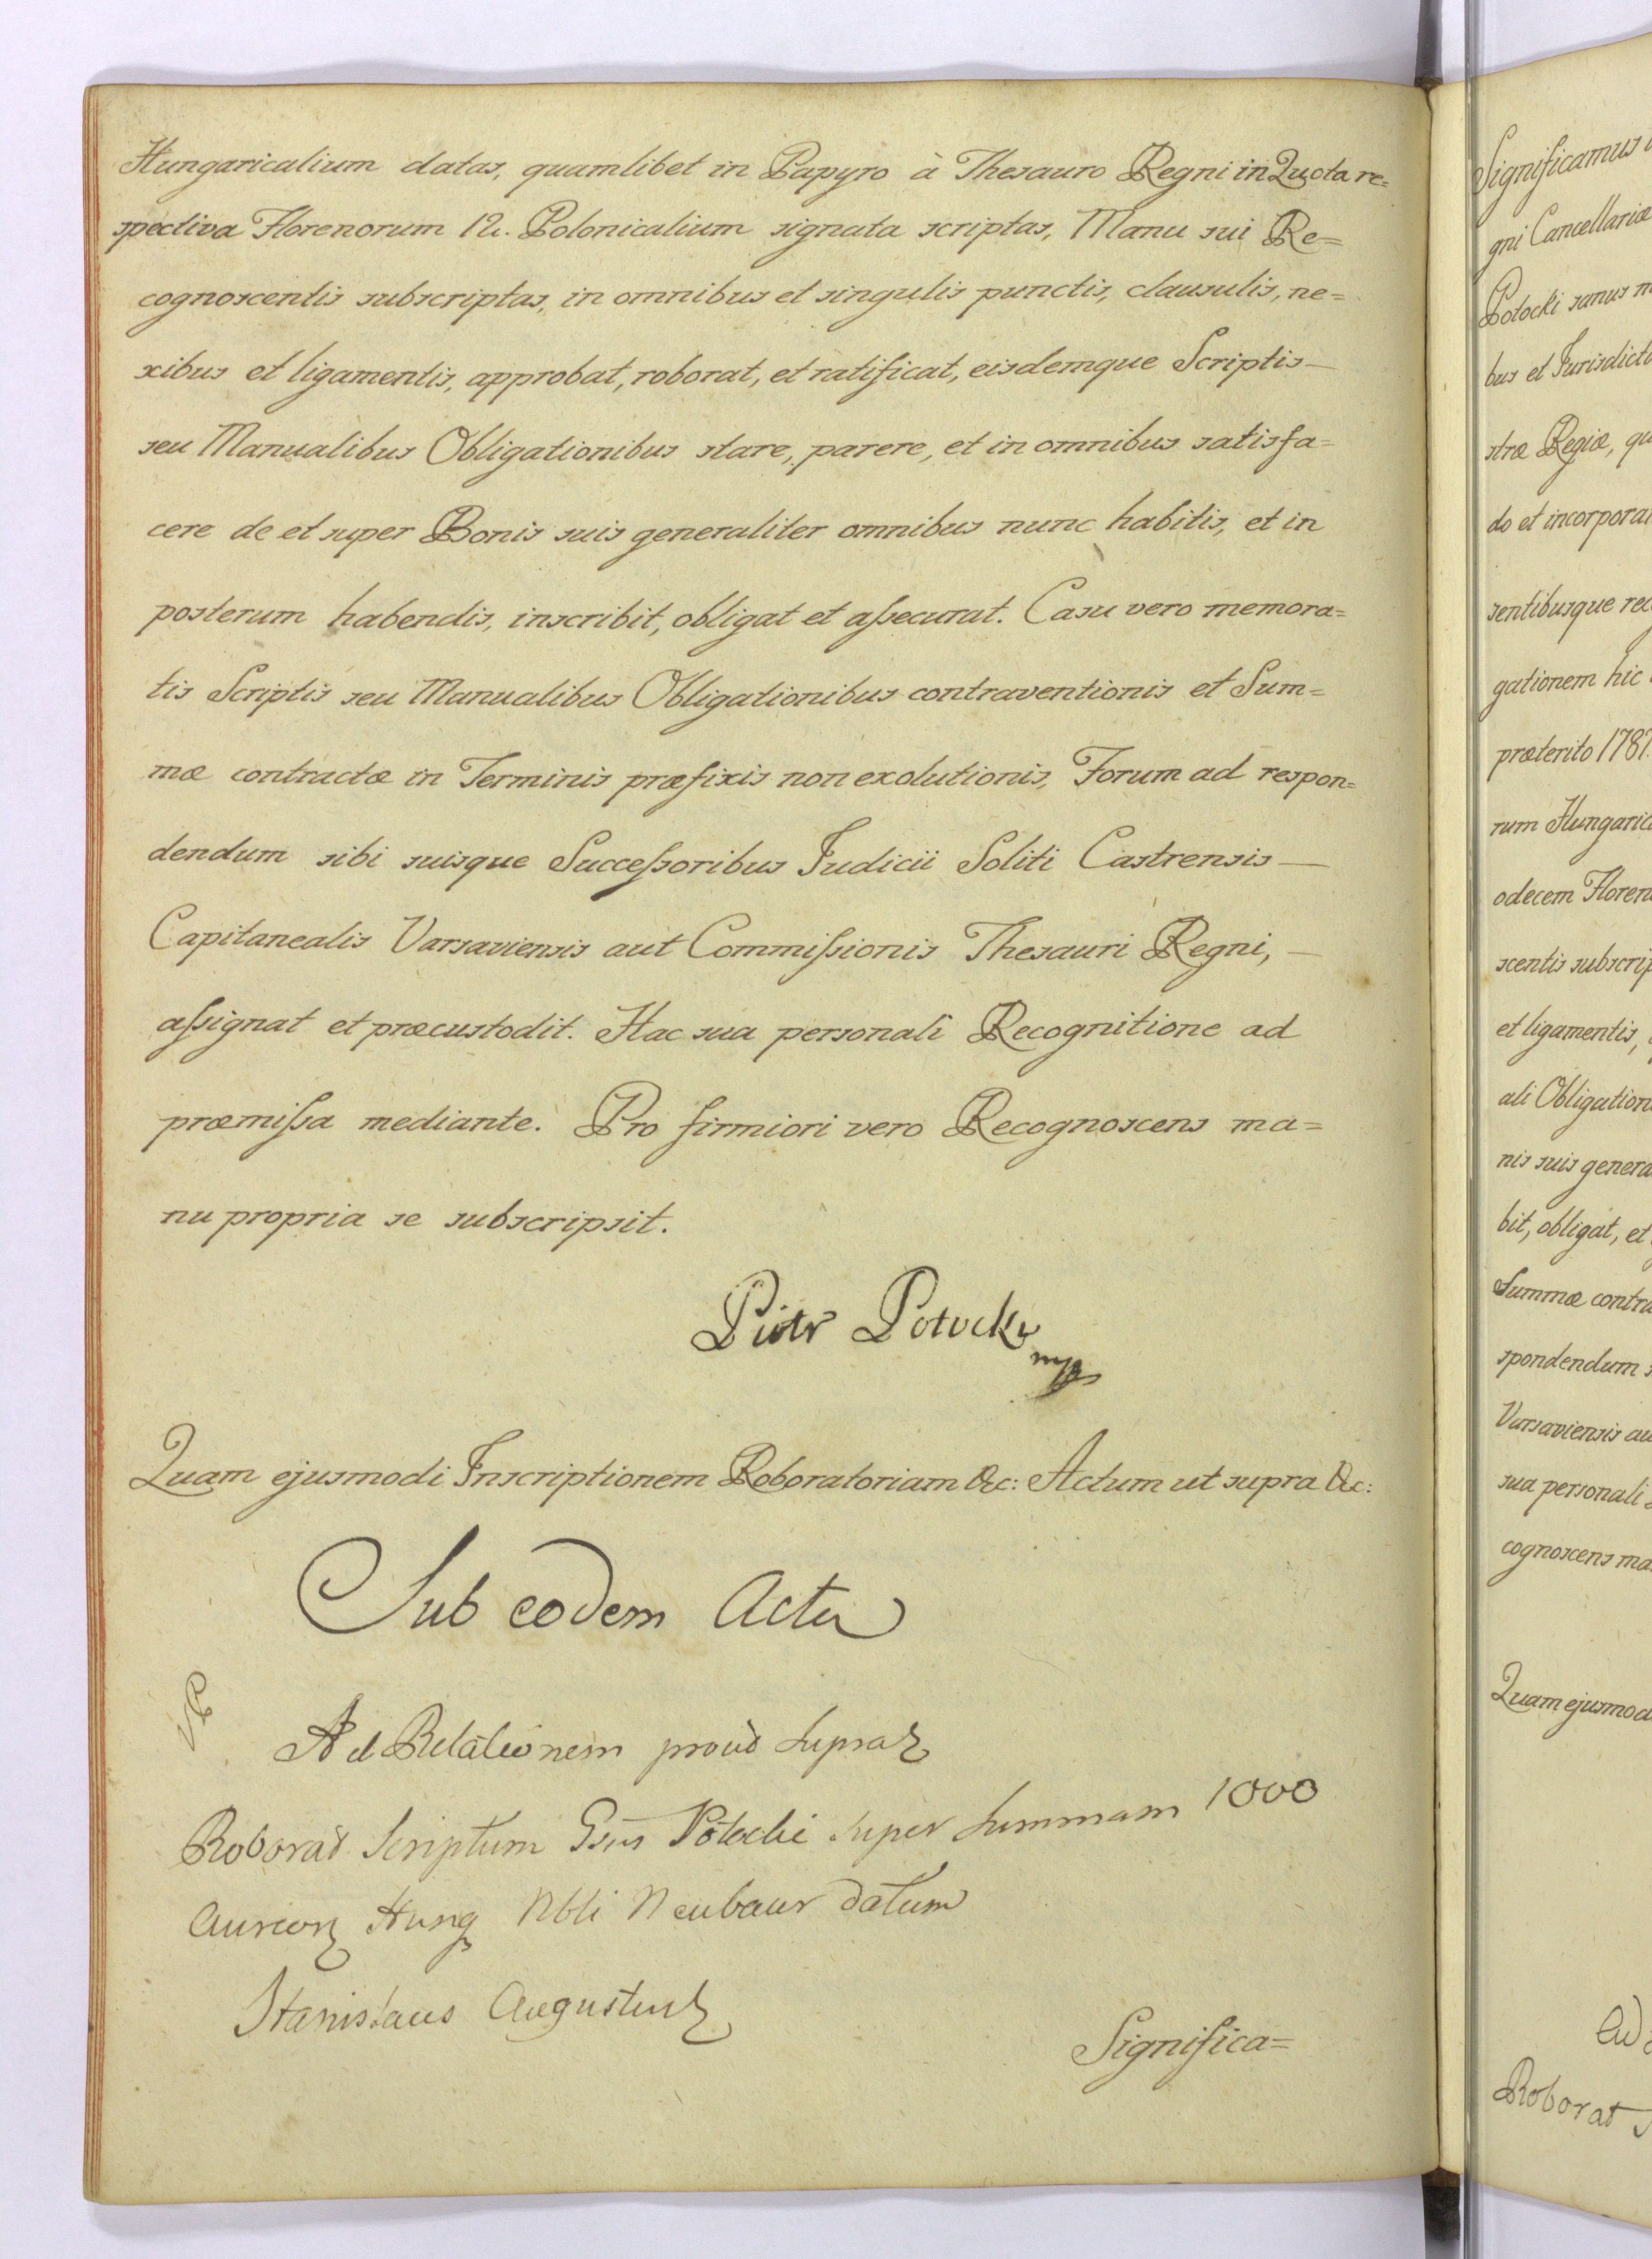 Hungaricalium datas, quamlibet in Papyro à Thesauro Regni in Quota re=
spectiva Florenorum 12. Polonicalium signata scriptas, Manu sui Re=
cognoscentis subscriptas, in omnibus et singulis punctis, clausulis, ne=
xibus et ligamentis, approbat, roborat, et ratificat, eisdemque Scriptis—
seu Manualibus Obligationibus stare, parere, et in omnibus satisfa=
cere de et super Bonis suis generaliter omnibus nunc habitis, et in
posterum habendis, inscribit, obligat et aſsecurat. Casu vero memora=
tis Scriptis seu Manualibus Obligationibus contraventionis et Sum=
mæ contractæ in Terminis præfixis non exolutionis, Forum ad respon=
dendum sibi suisque Succeſsoribus Judicii Soliti Castrensis—
Capitanealis Varsaviensis aut Commiſsionis Thesauri Regni,—
aſsignat et præcustodit. Hac sua personali Recognitione ad
præmiſsa mediante. Pro firmiori vero Recognoscens ma=
nu propria se subscripsit.
Piotr Potocki
mp
Quam ejusmodi Inscriptionem Roboratoriam &c: Actum ut supra &c:
Sub eodem Actu
Ad Relationem prout supra
Roborat Scriptum Potocki super summam 1000
Aureor Hung Nbli Neubaur datum
Stanislaus Augustus
Significa=
Significamus
gni Cancellariæ
Potocki sanus m
bus et Jurisdicti
stræ Regiæ, qu
do et incorpora
sentibusque rec
gationem hic
præterito 1787.
rum Hungaric
odecem Floren
scentis subscrip
et ligamentis,
ali Obligation
nis suis genera
bit, obligat, et
Summæ contra
spondendum s
Varsaviensis au
sua personali
cognoscens ma
Quam ejusmod
Ad
Roborat